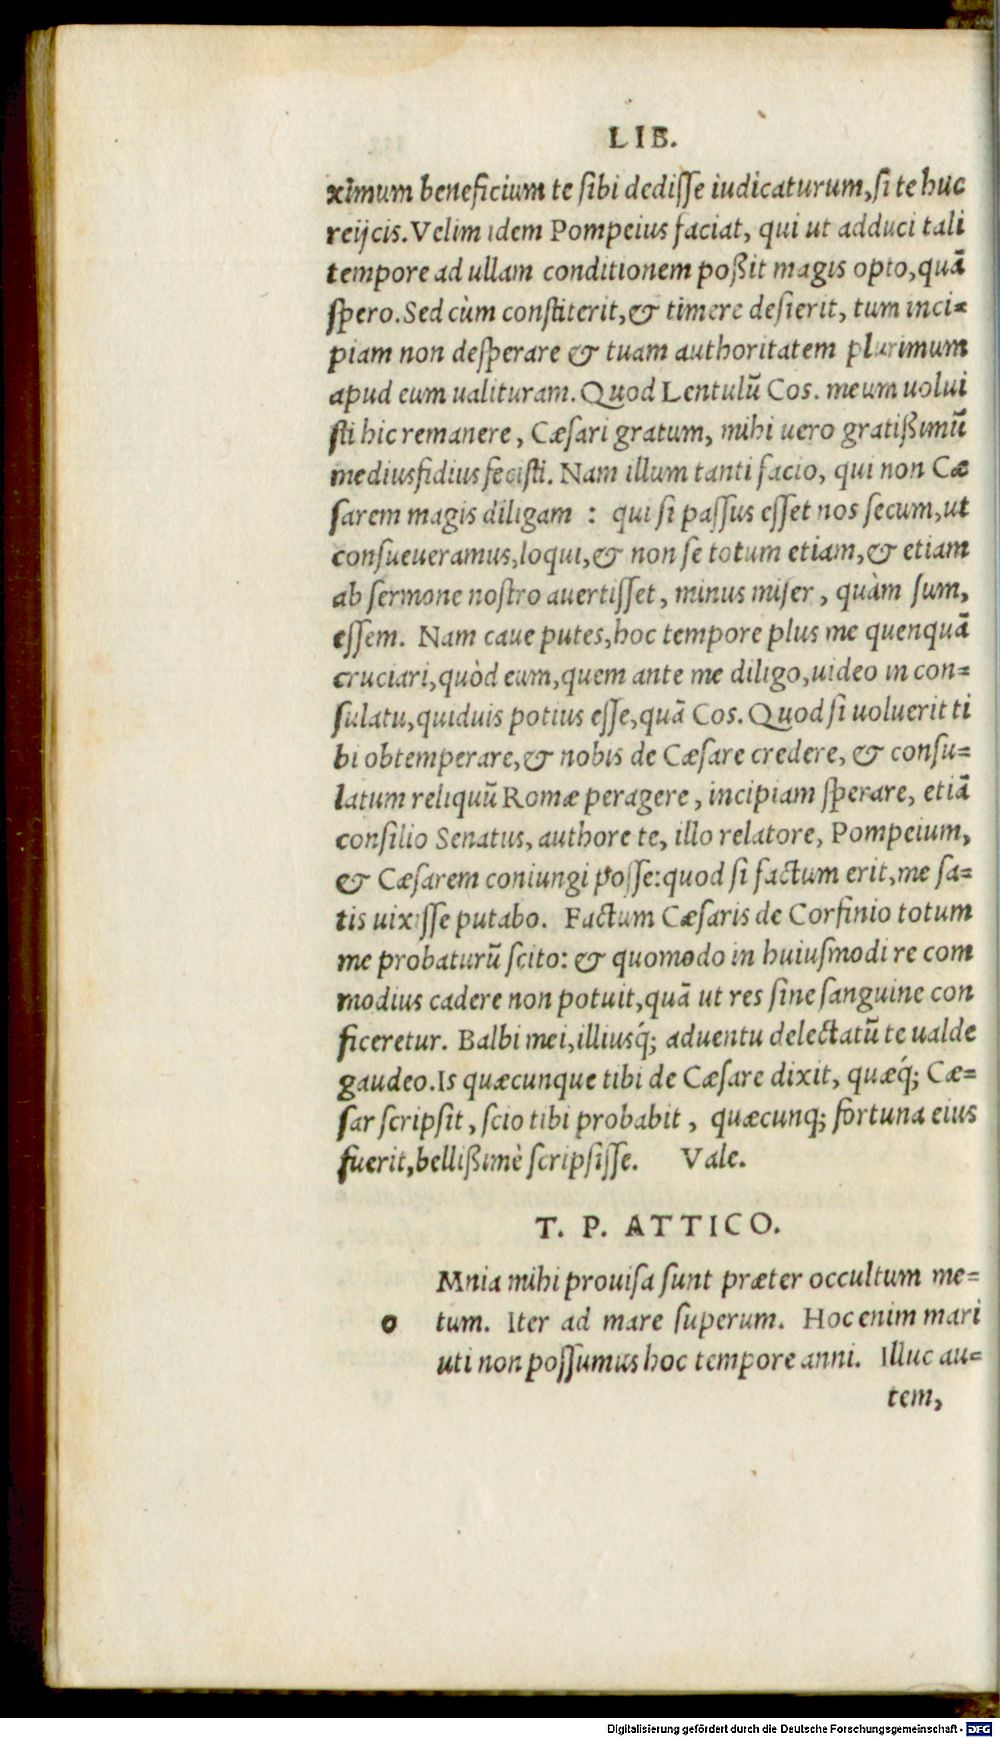 LIB.
ximum beneficium te sibi dedisse iudicaturum, si te huc
reijcis. Velim idem Pompeius faciat, qui ut adduci tali
tempore ad ullam conditionem poßit magis opto, quã
spero. Sed cùm constiterit, & timere desierit, tum inci=
piam non desperare & tuam authoritatem plurimum
apud eum ualituram. Quod Lentulũ Cos. meum uolui
sti hic remanere, Cæsari gratum, mihi uero gratißimũ
mediusfidius fecisti. Nam illum tanti facio, qui non Cæ
sarem magis diligam : qui si passus esset nos secum, ut
consueueramus, loqui, & non se totum etiam, & etiam
ab sermone nostro auertisset, minus miser, quàm sum,
essem. Nam caue putes, hoc tempore plus me quenquã
cruciari, quòd eum, quem ante me diligo, uideo in con=
sulatu, quiduis potius esse, quã Cos. Quod si uoluerit ti
bi obtemperare, & nobis de Cæsare credere, & consu=
latum reliquũ Romæ peragere, incipiam sperare, etiã
consilio Senatus, authore te, illo relatore, Pompeium,
& Cæsarem coniungi posse: quod si factum erit, me sa=
tis uixisse putabo. Factum Cæsaris de Corfinio totum
me probaturũ scito: & quomodo in huiusmodi re com
modius cadere non potuit, quã ut res sine sanguine con
ficeretur. Balbi mei, illiusq́; aduentu delectatũ te ualde
gaudeo. Is quæcunque tibi de Cæsare dixit, quæq́; Cæ=
sar scripsit, scio tibi probabit, quæcunq; fortuna eius
fuerit, bellißimè scripsisse. Vale.
T. P. ATTICO.
Mnia mihi prouisa sunt præter occultum me=
o tum. Iter ad mare superum. Hoc enim mari
uti non possumus hoc tempore anni. Illuc au=
tem,
Digitalisierung gefördert durch die Deutsche Forschungsgemeinschaft - DFG